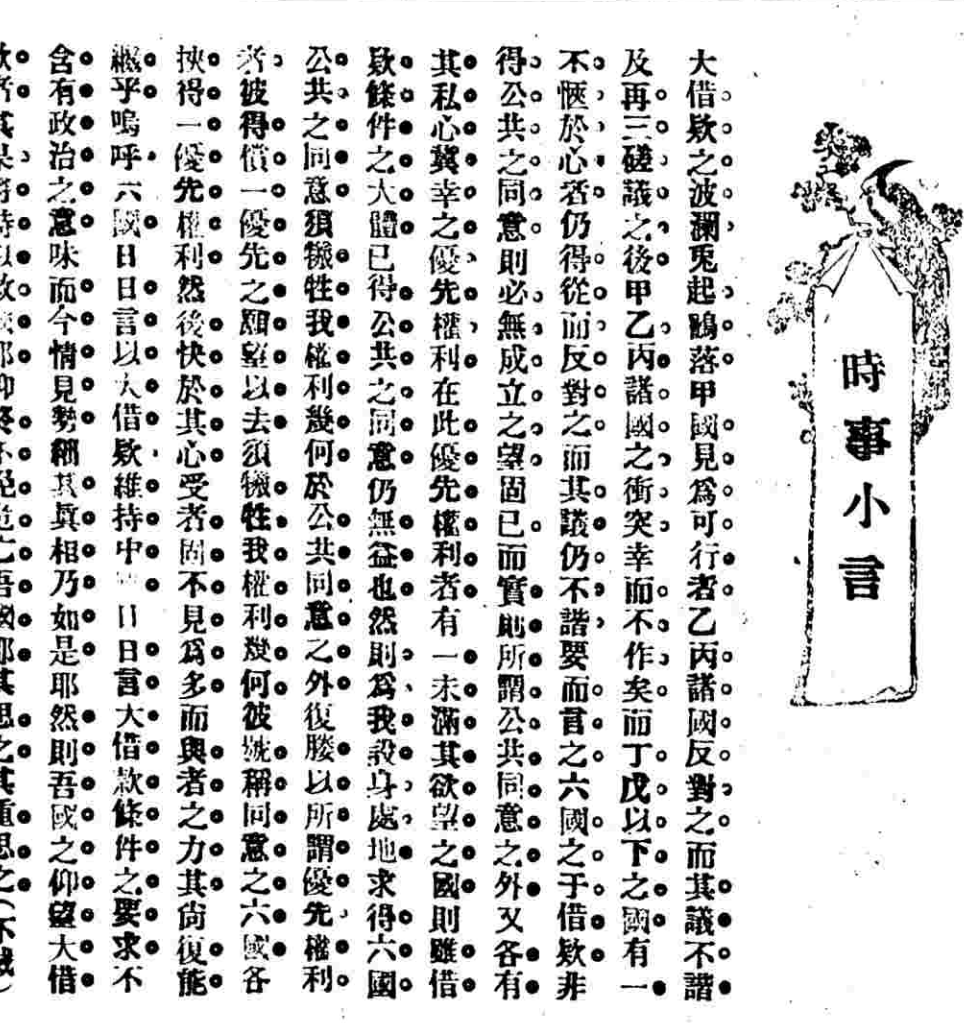 時事小言
大借欵之波瀾兎起鶻落甲國見爲可行者乙丙諸國反對之而其議不諧
及再三磋議之後甲乙丙諸國之衝突幸而不作矣而丁戊以下之國有一
不愜於心者仍得從而反對之而其議仍不諧要而言之六國之于借欵非
得公共之同意則必無成立之望固已而實則所謂公共同意之外又各有
其私心冀幸之優先權利在此優先權利者有一未滿其欲望之國則雖借
欵條件之大體已得公共之同意仍無益也然則爲我設身處地求得六國
公共之同意須犧牲我權利幾何於公共同意之外復媵以所謂優先權利
者彼得償一優先之願望以去須犧牲我權利幾何彼號稱同意之六國各
挾得一優先權利然後快於其心受者固不見爲多而與者之力其尙復能
繼乎嗚呼六國日日言以大借欵維持中 日日言大借款條件之要求不
含有政治之意味而今情見勢絀其眞相乃如是耶然則吾國之仰望大借
欵者其果將恃以救 耶抑終不免危亡吾國耶其思之其重思之（不